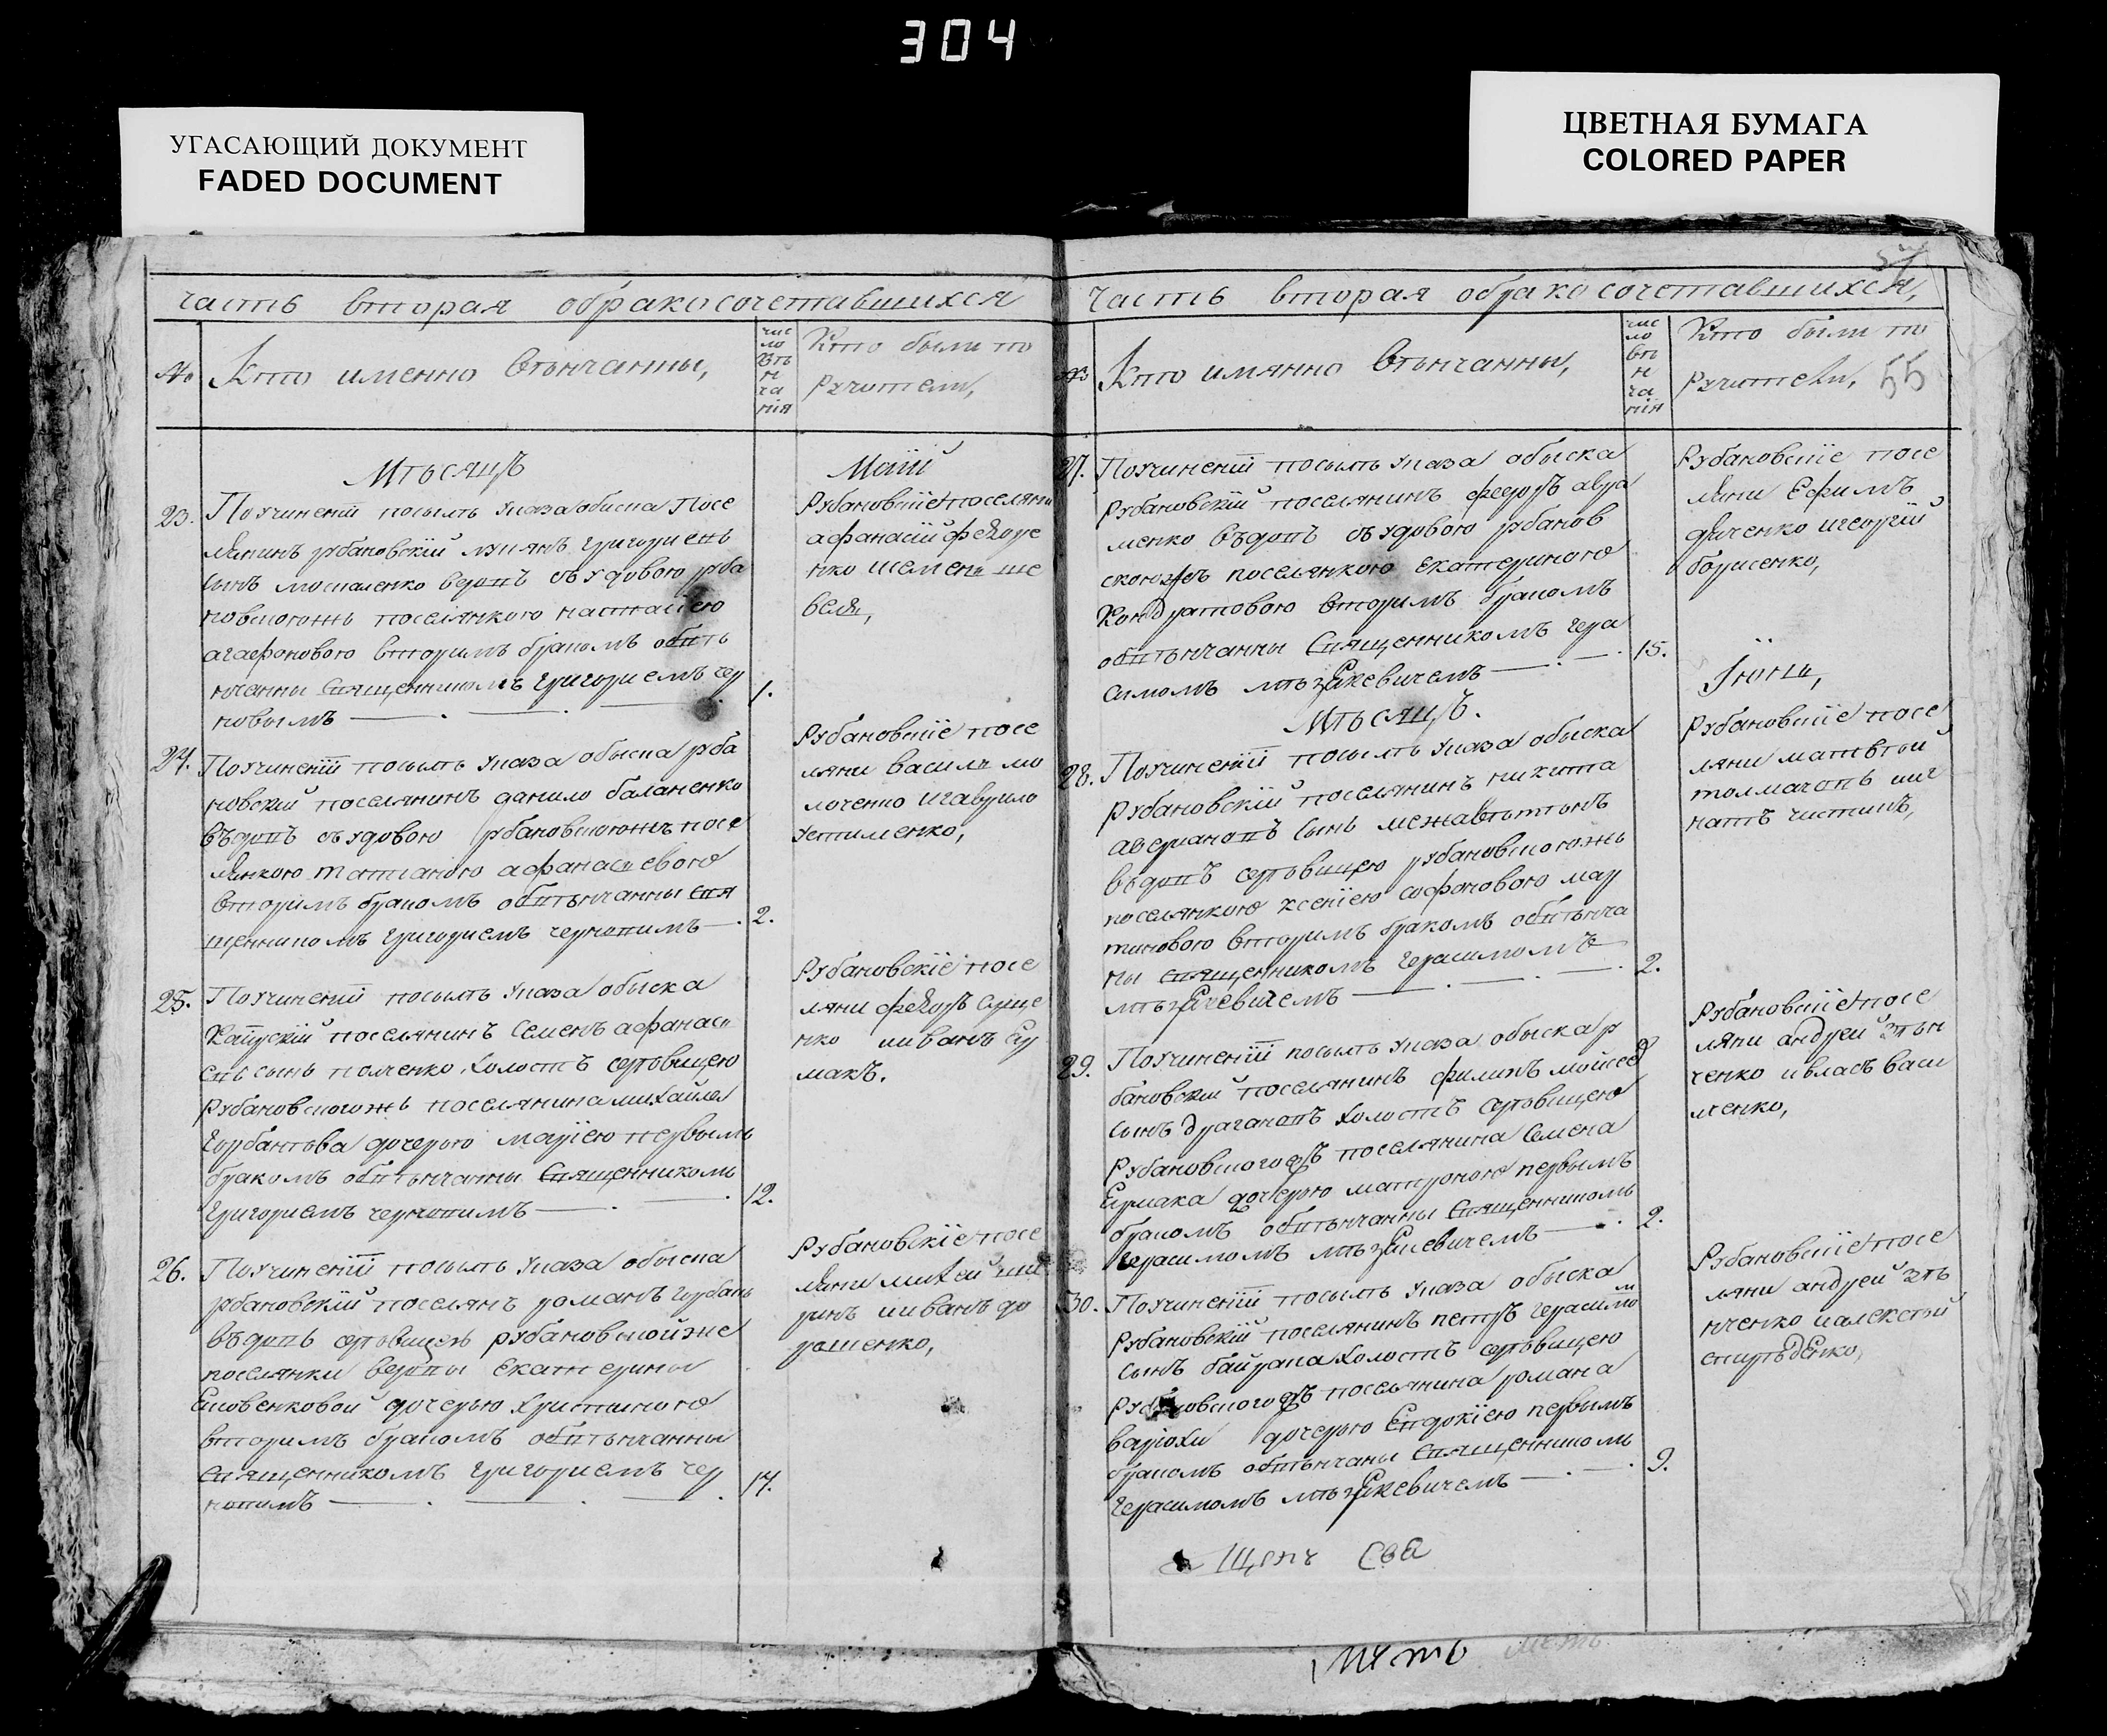 304
УГАСАЮЩИЙ ДОКУМЕНТ
FADED DOCUMENT
ЦВЕТНАЯ БУМАГА
COLORED PAPER
часть вторая обракосочетавшихся
№
Кто именно вѣнчанны,
чис
ло
вѣ
н
ча
нія
Кто были по
ручители,
Мѣсяцъ
Маій
23. Поучиненіи посылѣ указа обыска посе
лянинъ рубановскій лукянъ григориевъ
сынъ москаленко вдовъ съ удовою руба
новскоюжъ поселянкою настасіею
агафоновою вторимъ бракомъ обвѣ
нчанны Священникомъ Григориемъ чер
новымъ
1.
Рубановскіе поселяни
афанасій федоре
нко исемен ше
веля,
24. Поучиненіи посылѣ указа обыска руба
новскій поселянинъ данило баланенко
вѣдовъ съ удовою рубановскоюжъ посе
лянкою татианою афанасиевою
вторимъ бракомъ обвѣнчанны свя
щенникомъ григориемъ черновимъ
2.
Рубановскіе посе
ляни василь мо
лоченко игаврило
устименко,
25. Поучиненіи посылѣ указа обыска
Каирскій поселянинъ Семенъ афанаси
евъ сынъ попенко, холостъ сдѣвицею
Рубановскогожъ поселянина михайла
Горбантѣва дочерью маріею первымъ
бракомъ обвѣнчанны Священникомъ
Григориемъ черновимъ
12.
Рубановскіе посе
ляни федоръ суще
нко ииванъ ер
макъ.
26. Поучиненіи посылѣ указа обыска
рубановскій поселянъ романъ горбань
вѣдовъ сдѣвицею рубановскойже
поселянки вдовы екатерины
Яковенковой дочерью христиною
вторимъ бракомъ обвѣнчанны
Священникомъ Григориемъ чер
новимъ
14.
Рубановскіе посе
ляни михей ши
ринъ ииванъ до
рошенко,
часть вторая обракосочетавшихся,
№
Кто имянно вѣнчанны,
чис
ло
вѣ
н
ча
нія
Кто были по
ручители, 55
27. Поучиненіи посылѣ указа обыска
рубановскій поселянинъ федоръ авра
менко вѣдовъ съ удовою рубанов
скоюжъ поселянкою екатериною
Кондратовою вторимъ бракомъ
обвѣнчанны Священникомъ гера
симомъ мѣзякевичемъ
15.
Рубановскіе посе
ляни Ефимъ
дяченко игеоргій
борисенко,
Мѣсяцъ.
Іюнь,
28. Поучиненіи посылѣ указа обыска
рубановскій поселянинъ никита
аверяновъ сынъ
вѣдовъ сдѣвицею рубановскоюжъ
поселянкою ксеніею софоновою мар
тиновою вторимъ бракомъ обвѣнча
ны священникомъ герасимомъ
мѣзякевичемъ
2.
Рубановскіе посе
ляни матвѣй
толмачовъииг
натъ чистикъ,
29. Поучиненіи посылѣ указа обыска ру
бановскій поселянинъ филипъ моисее
сынъ драгановъ холостъ сдѣвицею
Рубановскогожъ поселянина Семена
Ермака дочерью матроною первымъ
бракомъ обвѣнчанны Священникомъ
Герасимомъ мѣзякевичемъ
2.
Рубановскіе посе
ляни андрей зѣн
ченко ивласъ васи
ленко,
30. Поучиненіи посылѣ указа обыска
Рубановскій поселянинъ петръ герасимо
сынъ байрака холостъ сдѣвицею
Рубановскогожъ поселянина романа
варіохи дочерью Евдокіею первымъ
бракомъ обвѣнчаны Священникомъ
Герасимомъ мѣзякевичемъ
9.
Рубановскіе посе
ляни андрей зѣ
нченко иалексѣй